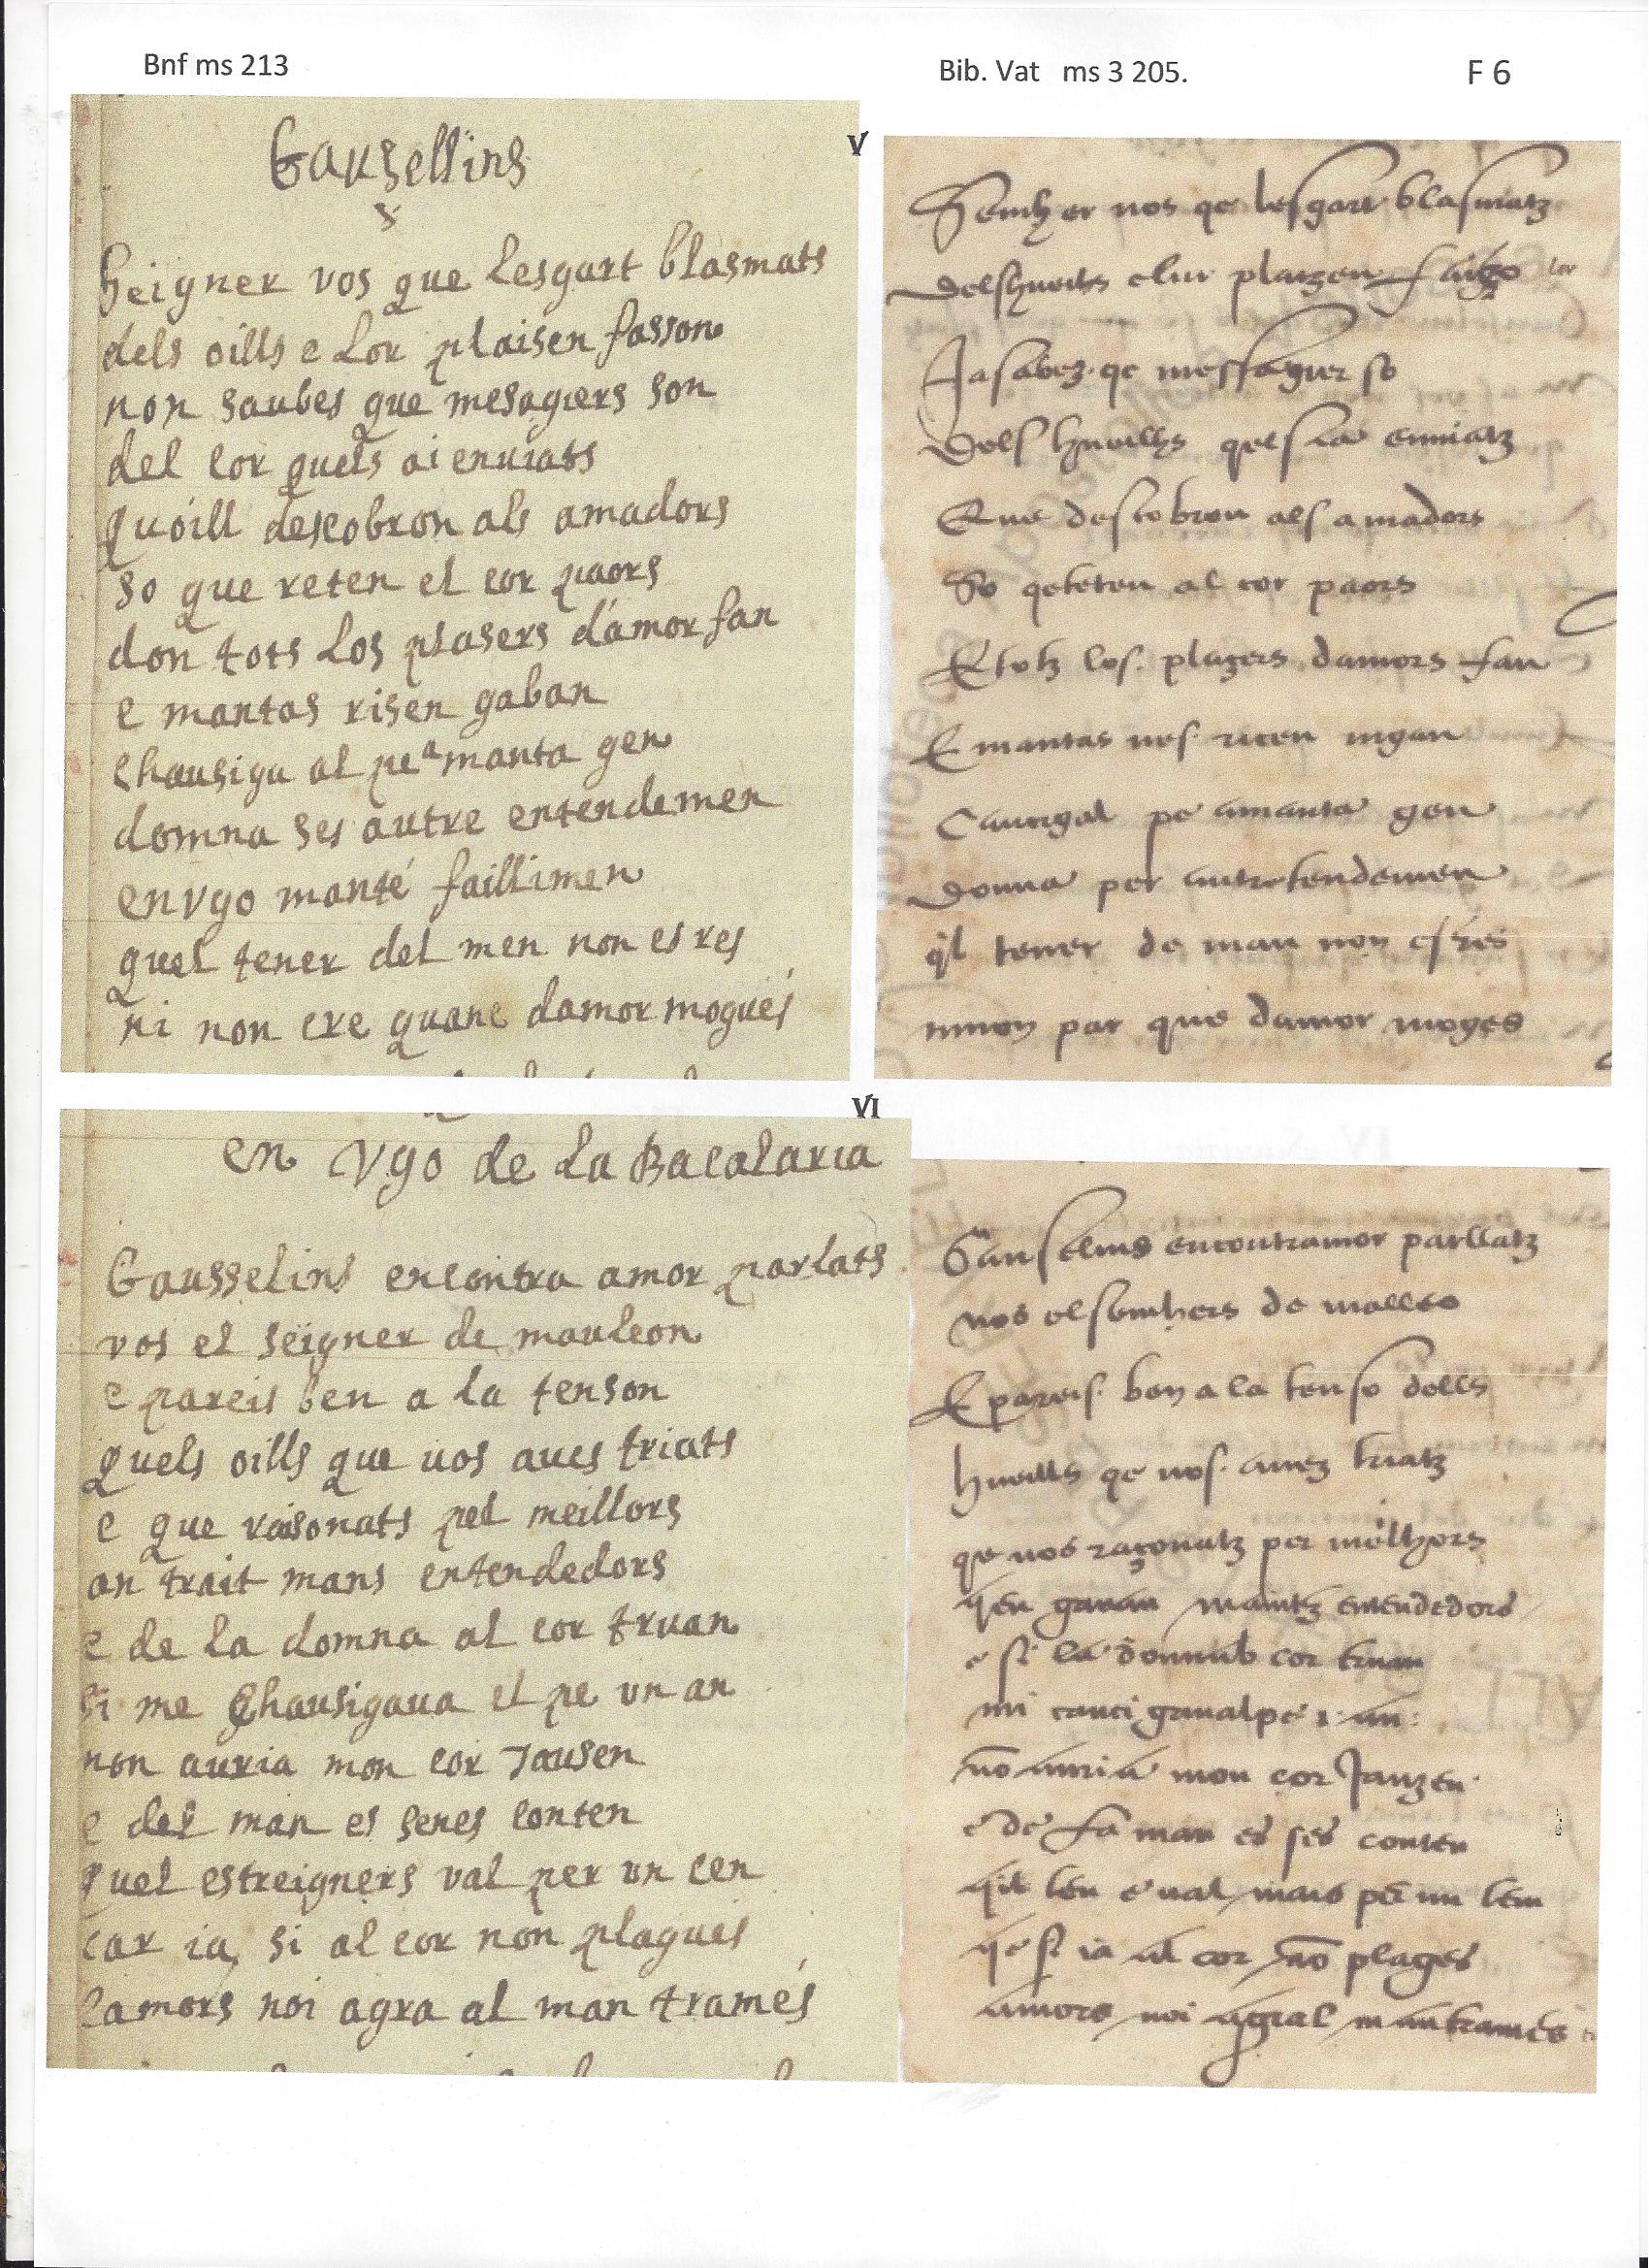 Bnf ms 213
Bib. Vat ms 3 205.
F 6
Gausellins
Seigner vos que lesgart blasmats
dels oills e lor plaisen fasson
non saubes que mesagiers son
del cor quels ai enuiats
quoill descobron als amadors
so que reten el cor paors
don tots los plasers d'amor fan
e mantas risen gaban
chausiga al pe a manta gen
domna ses autre entendemen
en vgo manté faillimen
quel tener del men non es res
ni non cre quanc damor mogués
V
Senh er uos qe lesgart blasmatz
Delshueilhs elur plazen faizo lor
Ja sabez qe messagier so
Dels hueilhs qelsia enuiatz
Que descobron als amadors
So qeteten al cor paors
E totz los plazers damors fan
E mantas ues rizen
Caucigal pe amanta gen
Donna per autretendemen
qil tener de man non es res
ninon par que damor moges
VI
en Vgo de la Bacalaria
Gausselins encontra amor parlats
vos el seigner de mauleon
e pareis ben a la tenson
quels oills que uos aues triats
e que raisonats pel meillors
an trait mans entendedors
e de la domna al cor truan
si me chausigaua el pe vn an
non auria mon cor Jausen
e del man es senes conten
quel estreigners val per vn cen
car ia si al cor non plagues
lamors noi agra al man tramés
Gauselins encontramor parllatz
uos elsenhers de malleo
E pareis ben a la tenso dells
hueills qe uos auez triatz
qe uos razonatz per melhors
qen maintz entendedors
e si la donnab cor truan
mi caucigaualpe i. an.
nō auria mon cor Jauzen
e de sa man es ses conten
qil ten e ual mais per un
qe si ia al cor nō plages
amors noi agral mantrames